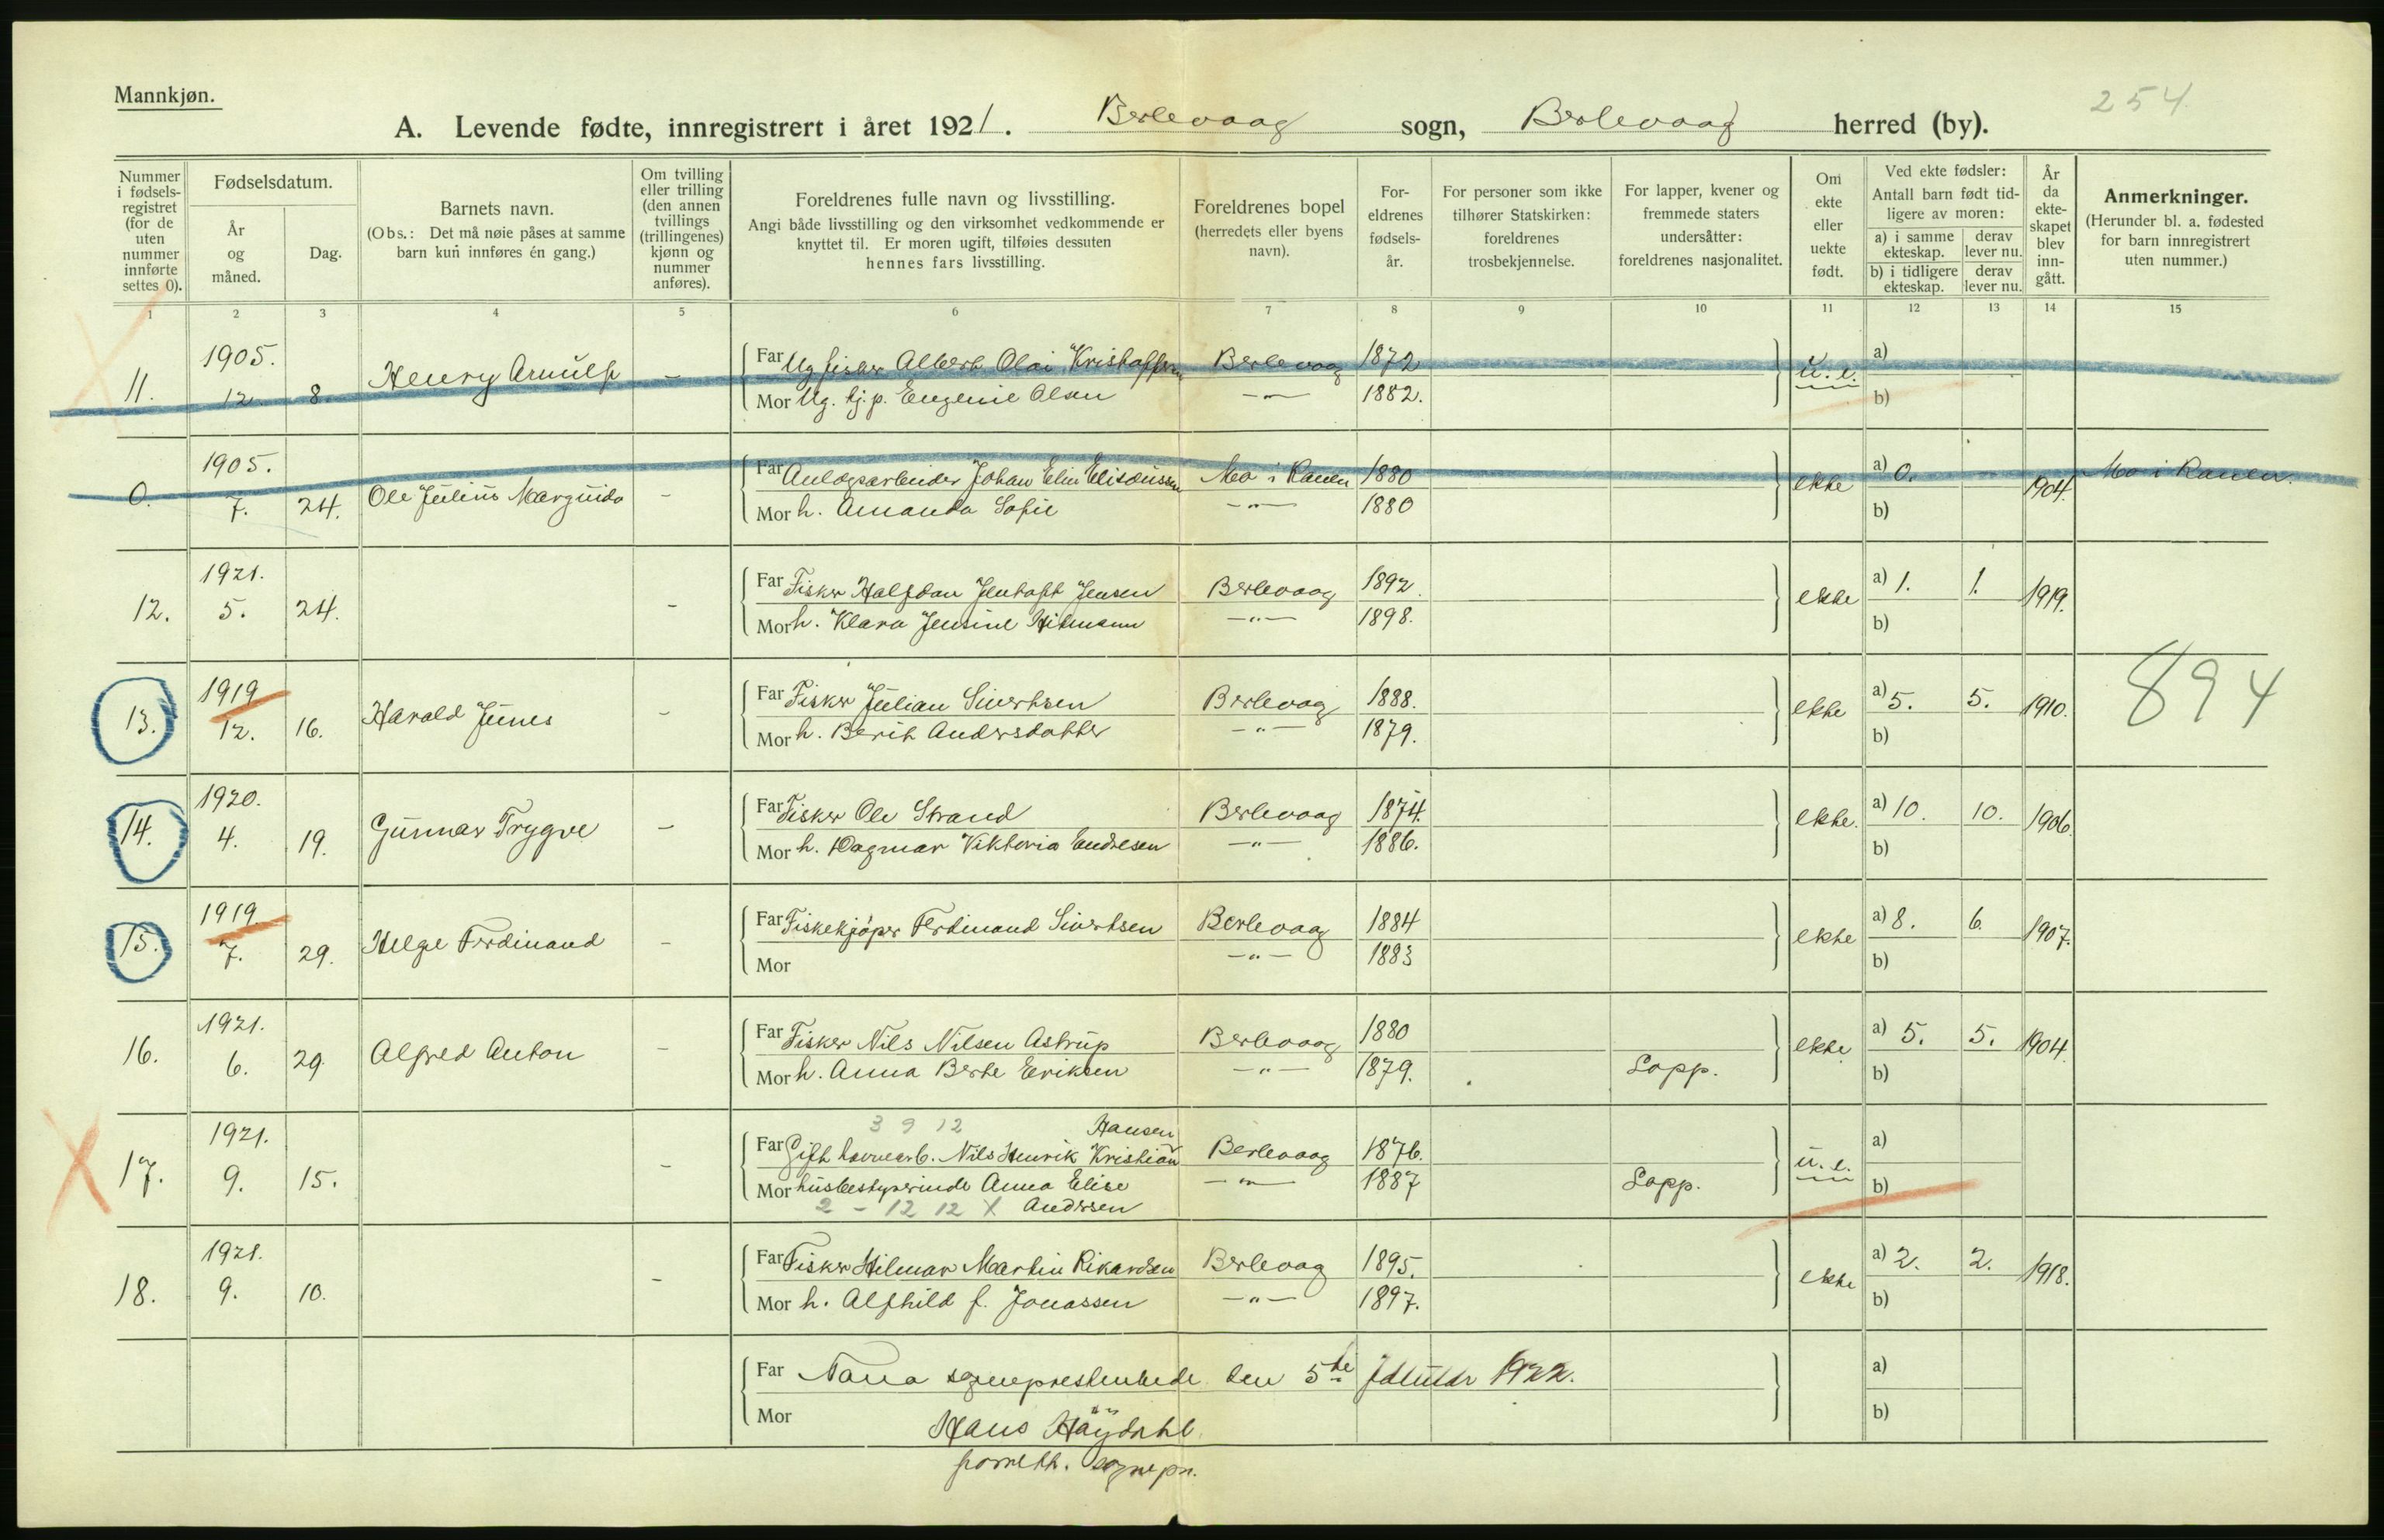 Mannkjøn.
254
A. Levende fødte, innregistrert i året 1921. Berlevaag sogn, Berlevaag herred (by).
Nummer i fødsels-registret (for de uten nummer innførte settes 0).
Fødselsdatum.
År og måned.
Dag.
Barnets navn.
(Obs.: Det må nøie påses at samme barn kun innføres én gang.)
Om tvilling eller trilling (den annen tvillings (trillingenes) kjønn og nummer anføres).
Foreldrenes fulle navn og livsstilling.
Angi både livsstilling og den virksomhet vedkommende er knyttet til. Er moren ugift, tilføies dessuten hennes fars livsstilling.
Foreldrenes bopel (herredets eller byens navn).
For-eldrenes fødsels-år.
For personer som ikke tilhører Statskirken: foreldrenes trosbekjennelse.
For lapper, kvener og fremmede staters undersåtter: foreldrenes nasjonalitet.
Om ekte eller uekte født.
Ved ekte fødsler:
Antall barn født tid-ligere av moren:
a) i samme ekteskap.
derav lever nu.
b) i tidligere ekteskap.
derav lever nu.
År da ekte-skapet blev inn-gått.
Anmerkninger.
(Herunder bl. a. fødested for barn innregistrert uten nummer.)
1 2 3 4 5 6 7 8 9 10 11 12 13 14 15
11. 1905. 12. 8. Henry Arnulf - Far Ug fisker Albert Olai Kristoffersen Berlevaag 1872 u. e. a)
Mor Ug. tj.p. Eugenie Olsen -"- 1882. b)
0. 1905. 7. 24. Ole Julius Marguido - Far Anlægsarbeider Johan Elisæussen Mo i Ranen 1880 ekte a) 0. 1904. Mo i Ranen.
Mor h. Amanda Sofie -"- 1880 b)
12. 1921. 5. 24. - Far Fisker Halfdan Jentoft Jensen Berlevaag 1892. ekte a) 1. 1. 1919.
Mor h. Klara Jensine Hitmann -"- 1898. b)
13. 1919 12. 16. Harald Junes - Far Fisker Julian Sivertsen Berlevag 1888. ekte a) 5. 5. 1910. 894
Mor h. Berit Andersdatter -"- 1879. b)
14. 1920. 4. 19. Gunnar Trygve - Far Fisker Ole Strand Berlevaag 1874. ekte. a) 10. 10. 1906.
Mor h. Dagmar Viktoria Endresen -"- 1886. b)
15. 1919. 7. 29. Helge Ferdinand - Far Fiskekjøper Ferdinand Sivertsen Berlevaag 1884 ekte a) 8. 6. 1907.
Mor -"- 1883 b)
16. 1921. 6. 29. Alfred Anton - Far Fisker Nils Nilsen Astrup Berlevaag 1880 ekte a) 5. 5. 1904.
Mor h. Anna Berte Eriksen -"- 1879. Lapp. b)
3 9 12 Hansen
17. 1921. 9. 15. - Far Gift havnearb. Nils Henrik Kristian Berlevaag 1876. u. e. a)
Mor husbestyrerinde Anna Elise -"- 1887 Lapp. b)
2 - 12 12 X Andersen
18. 1921. 9. 10. - Far Fisker Hilmar Martin Rikardsen Berlevag 1895. ekte a) 2. 2. 1918.
Mor h. Alfhild f. Jonassen -"- 1897. b)
Far Tana sogneprestembede den 5te februar 1922. a)
Mor Hans Høydahl b)
forretn. sognepr.